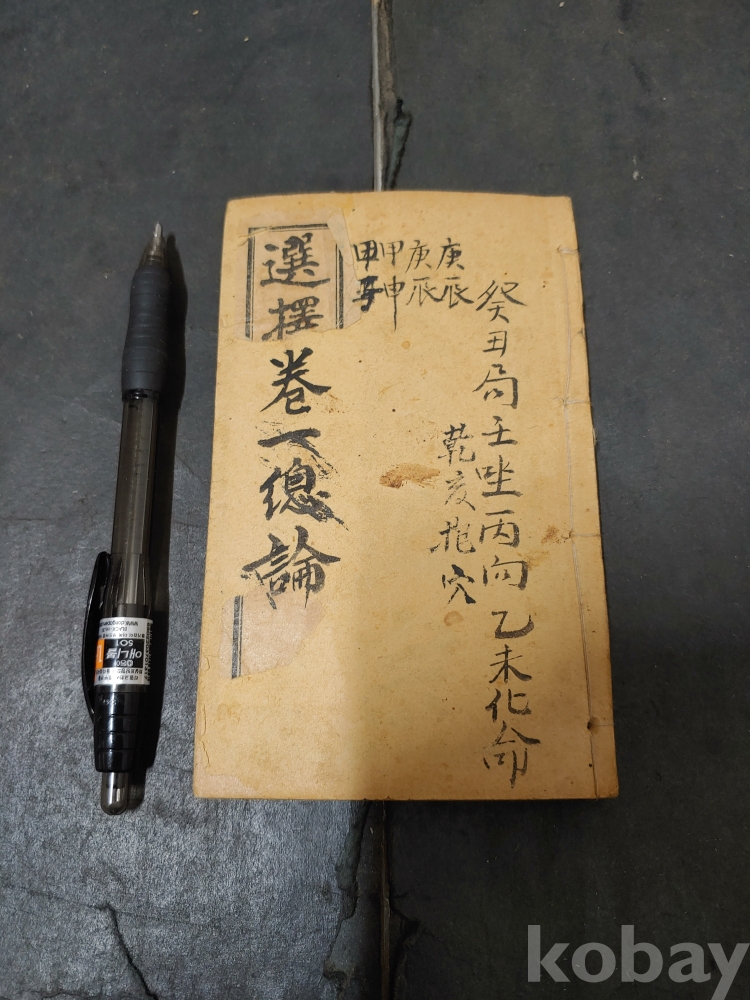 癸丑局壬坐丙向乙未化命
乾亥龍穴
庚辰
庚辰
甲申
甲子
選擇
卷一總論
501
애니볼
kobay